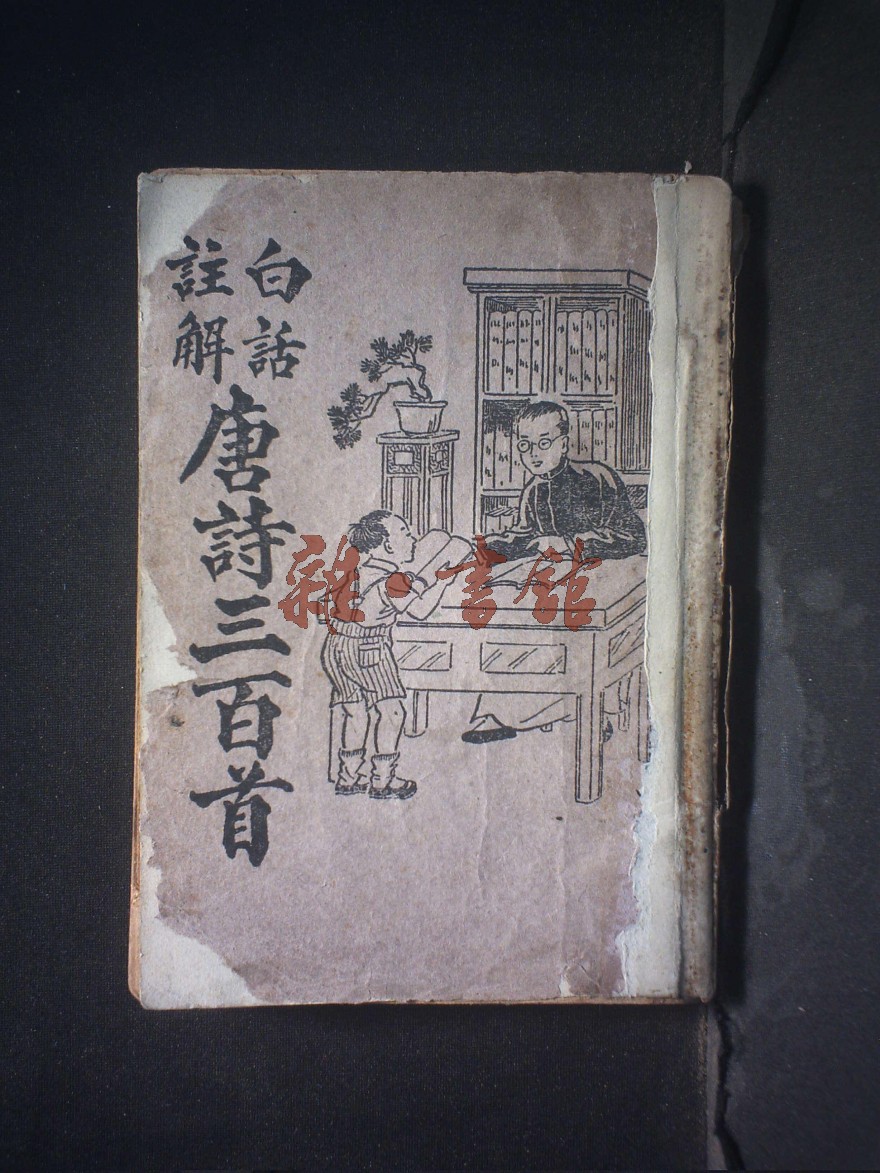 白話
註解
唐詩三百首
雜·書館